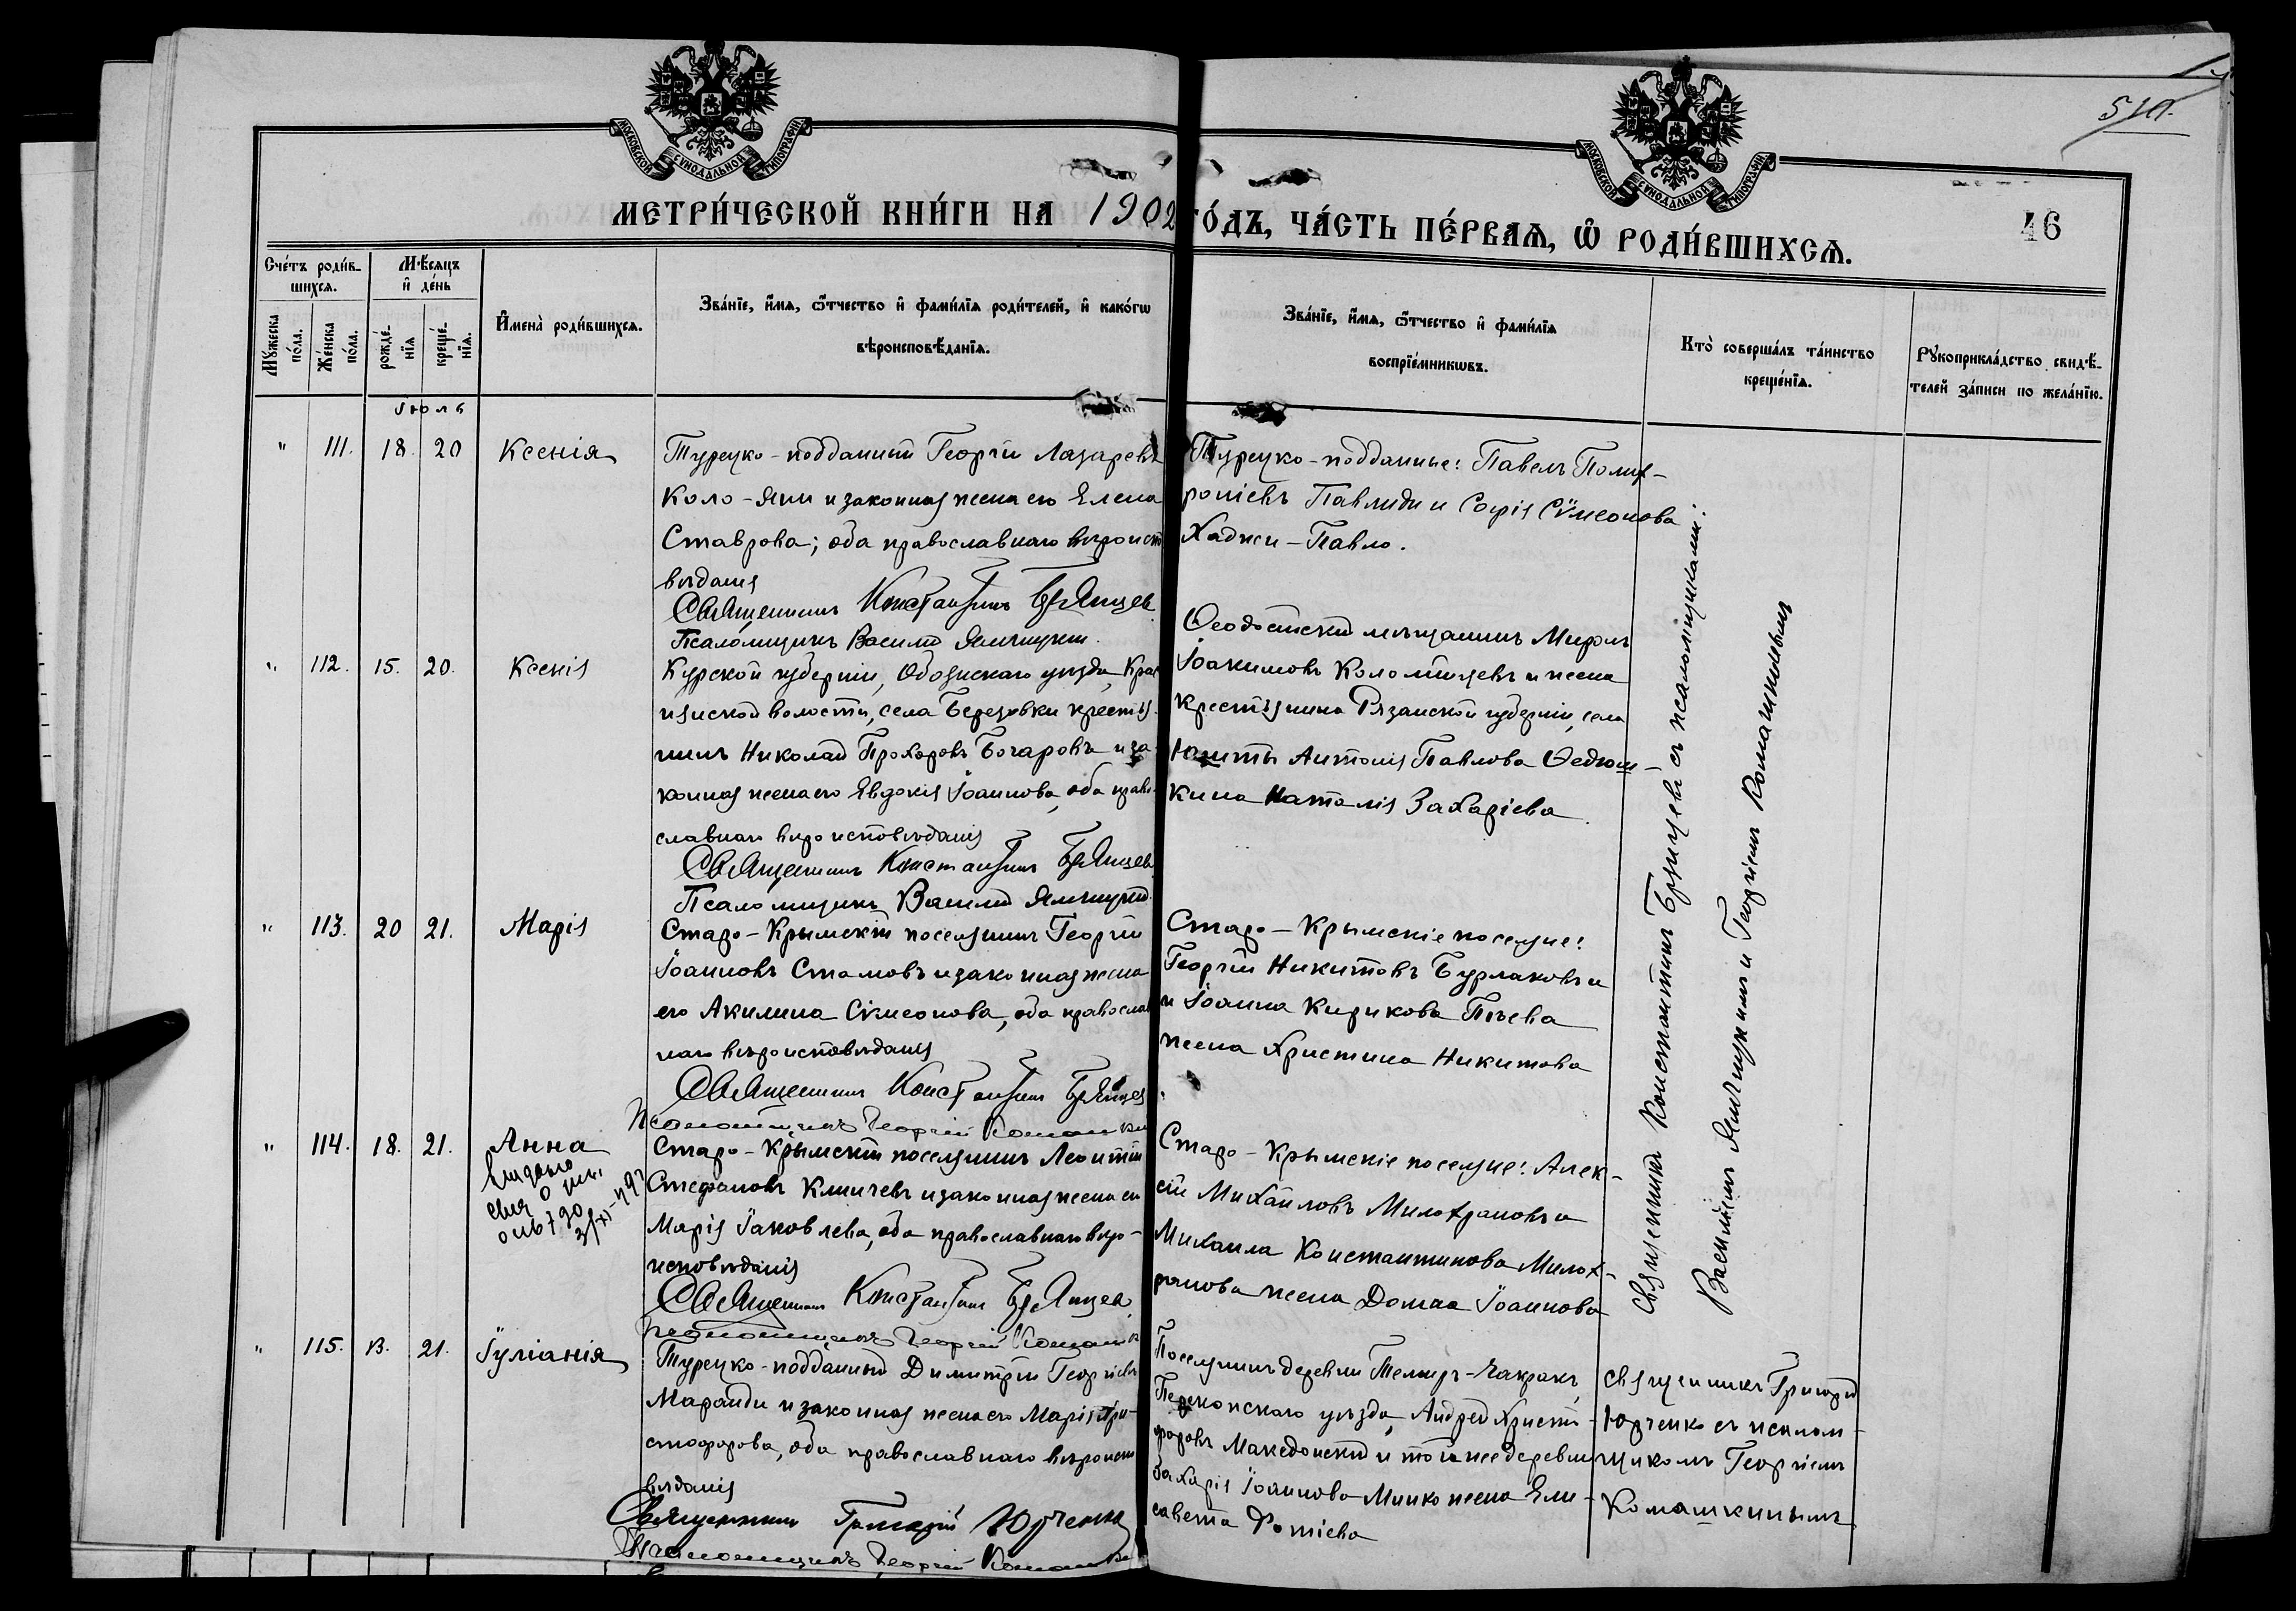 51а.
МОСКОВСКОЙ СѴНОДАЛЬНОЙ ТИПОГРАФІИ
МОСКОВСКОЙ СѴНОДАЛЬНОЙ ТИПОГРАФІИ
МЕТРИ́ЧЕСКОЙ КНИ́ГИ НА 1902 ГО́ДЪ, ЧА́СТЬ ПЕ́РВАѦ, Ѡ҆ РОДИ́ВШИХСѦ.
46
Сче́тъ роди́в-
шихсѧ.
Мꙋ́жеска
по́ла.
Же́нска
по́ла.
Мѣ́сѧцъ
и҆ де́нь
рожде́-
нїѧ
креще́-
нїѧ.
И҆мена̀ роди́вшихсѧ.
Зва́нїе, и҆́мѧ, ѻ҆́тчество и҆ фами́лїѧ роди́телей, и҆ како́гѡ
вѣроисповѣ́данїѧ.
Зва́нїе, и҆́мѧ, ѻ҆́тчество и҆ фами́лїѧ
воспрїе́мникѡвъ.
Кто̀ соверша́лъ та́инство
креще́нїѧ.
Рꙋкоприкла́дство свидѣ́-
телей за́писи по жела́нїю.
Іюль
" 111. 18. 20 Ксенія
Турецко-подданный Георгій Лазаревъ
Коло-Яни и законная жена его Елена
Ставрова; оба православнаго вѣроиспо
вѣданія
Священникъ Константинъ Брянцев
Псаломщикъ Василій Ямчицкій.
Турецко-подданные: Павелъ Полих-
роніевъ Павлиди и Софія Сѵмеонова
Хаджи-Павло.
" 112. 15. 20. Ксенія
Курской губерніи, Обоянскаго уѣзда, Крас
нянской волости, села Березовки крестья-
нинъ Николай Прохоровъ Бочаровъ и за-
конная жена его Евдокія Іоаннова, оба право-
славнаго вѣроисповѣданія
Священникъ Константинъ Брянцев
Псаломщикъ Василій Ямчицкій.
Ѳеодосійскій мѣщанинъ Миронъ
Іоакимовъ Коломійцевъ и жена
крестьянина Рязанской губерніи, села
Антонія Павлова Ѳедюш-
кина Наталія Захаріева.
" 113. 20 21. Марія
Старо-Крымскій поселянинъ Георгій
Іоанновъ Стамовъ и законная жена
его Акилина Сѵмеонова, оба православ
наго вѣроисповѣданія
Священникъ Константинъ Брянцев
Псаломщикъ Георгій Комашкин
Старо-Крымскіе поселяне:
Георгій Никитовъ Бурлаковъ и
и Іоанна Кирикова
жена Христина Никитова
" 114. 18. 21. Анна
выдано
Старо-Крымскій поселянинъ Леонтій
Стефановъ Кличевъ и законная жена его
Марія Іаковлева, оба православнаго вѣро-
исповѣданія
Священникъ Константинъ Брянцев
Псаломщикъ Георгій Комашк
Старо-Крымскіе поселяне: Алек-
сій Михаиловъ Милохрановъ и
Михаила Константинова Милох-
ранова жена Домна Іоаннова
Священникъ Константинъ Брянцевъ съ псаломщиками:
Василіемъ Ямчицкимъ и Георгіемъ Комашкинымъ
" 115. 13. 21. Іуліанія
Турецко-подданный Димитрій Георгіевъ
Маранди и законная жена его Марія Хри-
стофорова, оба православнаго вѣроиспо
вѣданія
Священникъ Григорій Юрченко
Псаломщикъ Георгій Комашки
Поселянинъ деревни Темиръ-Чакракъ,
Перекопскаго уѣзда, Андрей Христо-
форовъ Македонскій и той же деревни
Захарія Іоаннова Минко жена Ели-
савета Фотіева
Священникъ Григорій
Юрченко съ псалом-
щикомъ Георгіемъ
Комашкинымъ